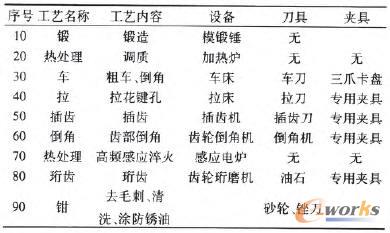 序号 工艺名称 工艺内容 设备 刀具 夹具
10 锻 锻造 模锻锤 无
20 热处理 调质 加热炉 无 无
30 车 粗车、倒角 车床 车刀 三爪卡盘
40 拉 拉花键孔 拉床 拉刀 专用夹具
50 插齿 插齿 插齿机 插齿刀 专用夹具
60 倒角 齿部倒角 齿轮倒角机 倒角机 专用夹具
70 热处理 高频感应淬火 感应电炉 无 无
80 珩齿 珩齿 齿轮珩磨机 油石 专用夹具
90 钳 去毛刺、清
洗、涂防锈油 砂轮、锉刀
e-works